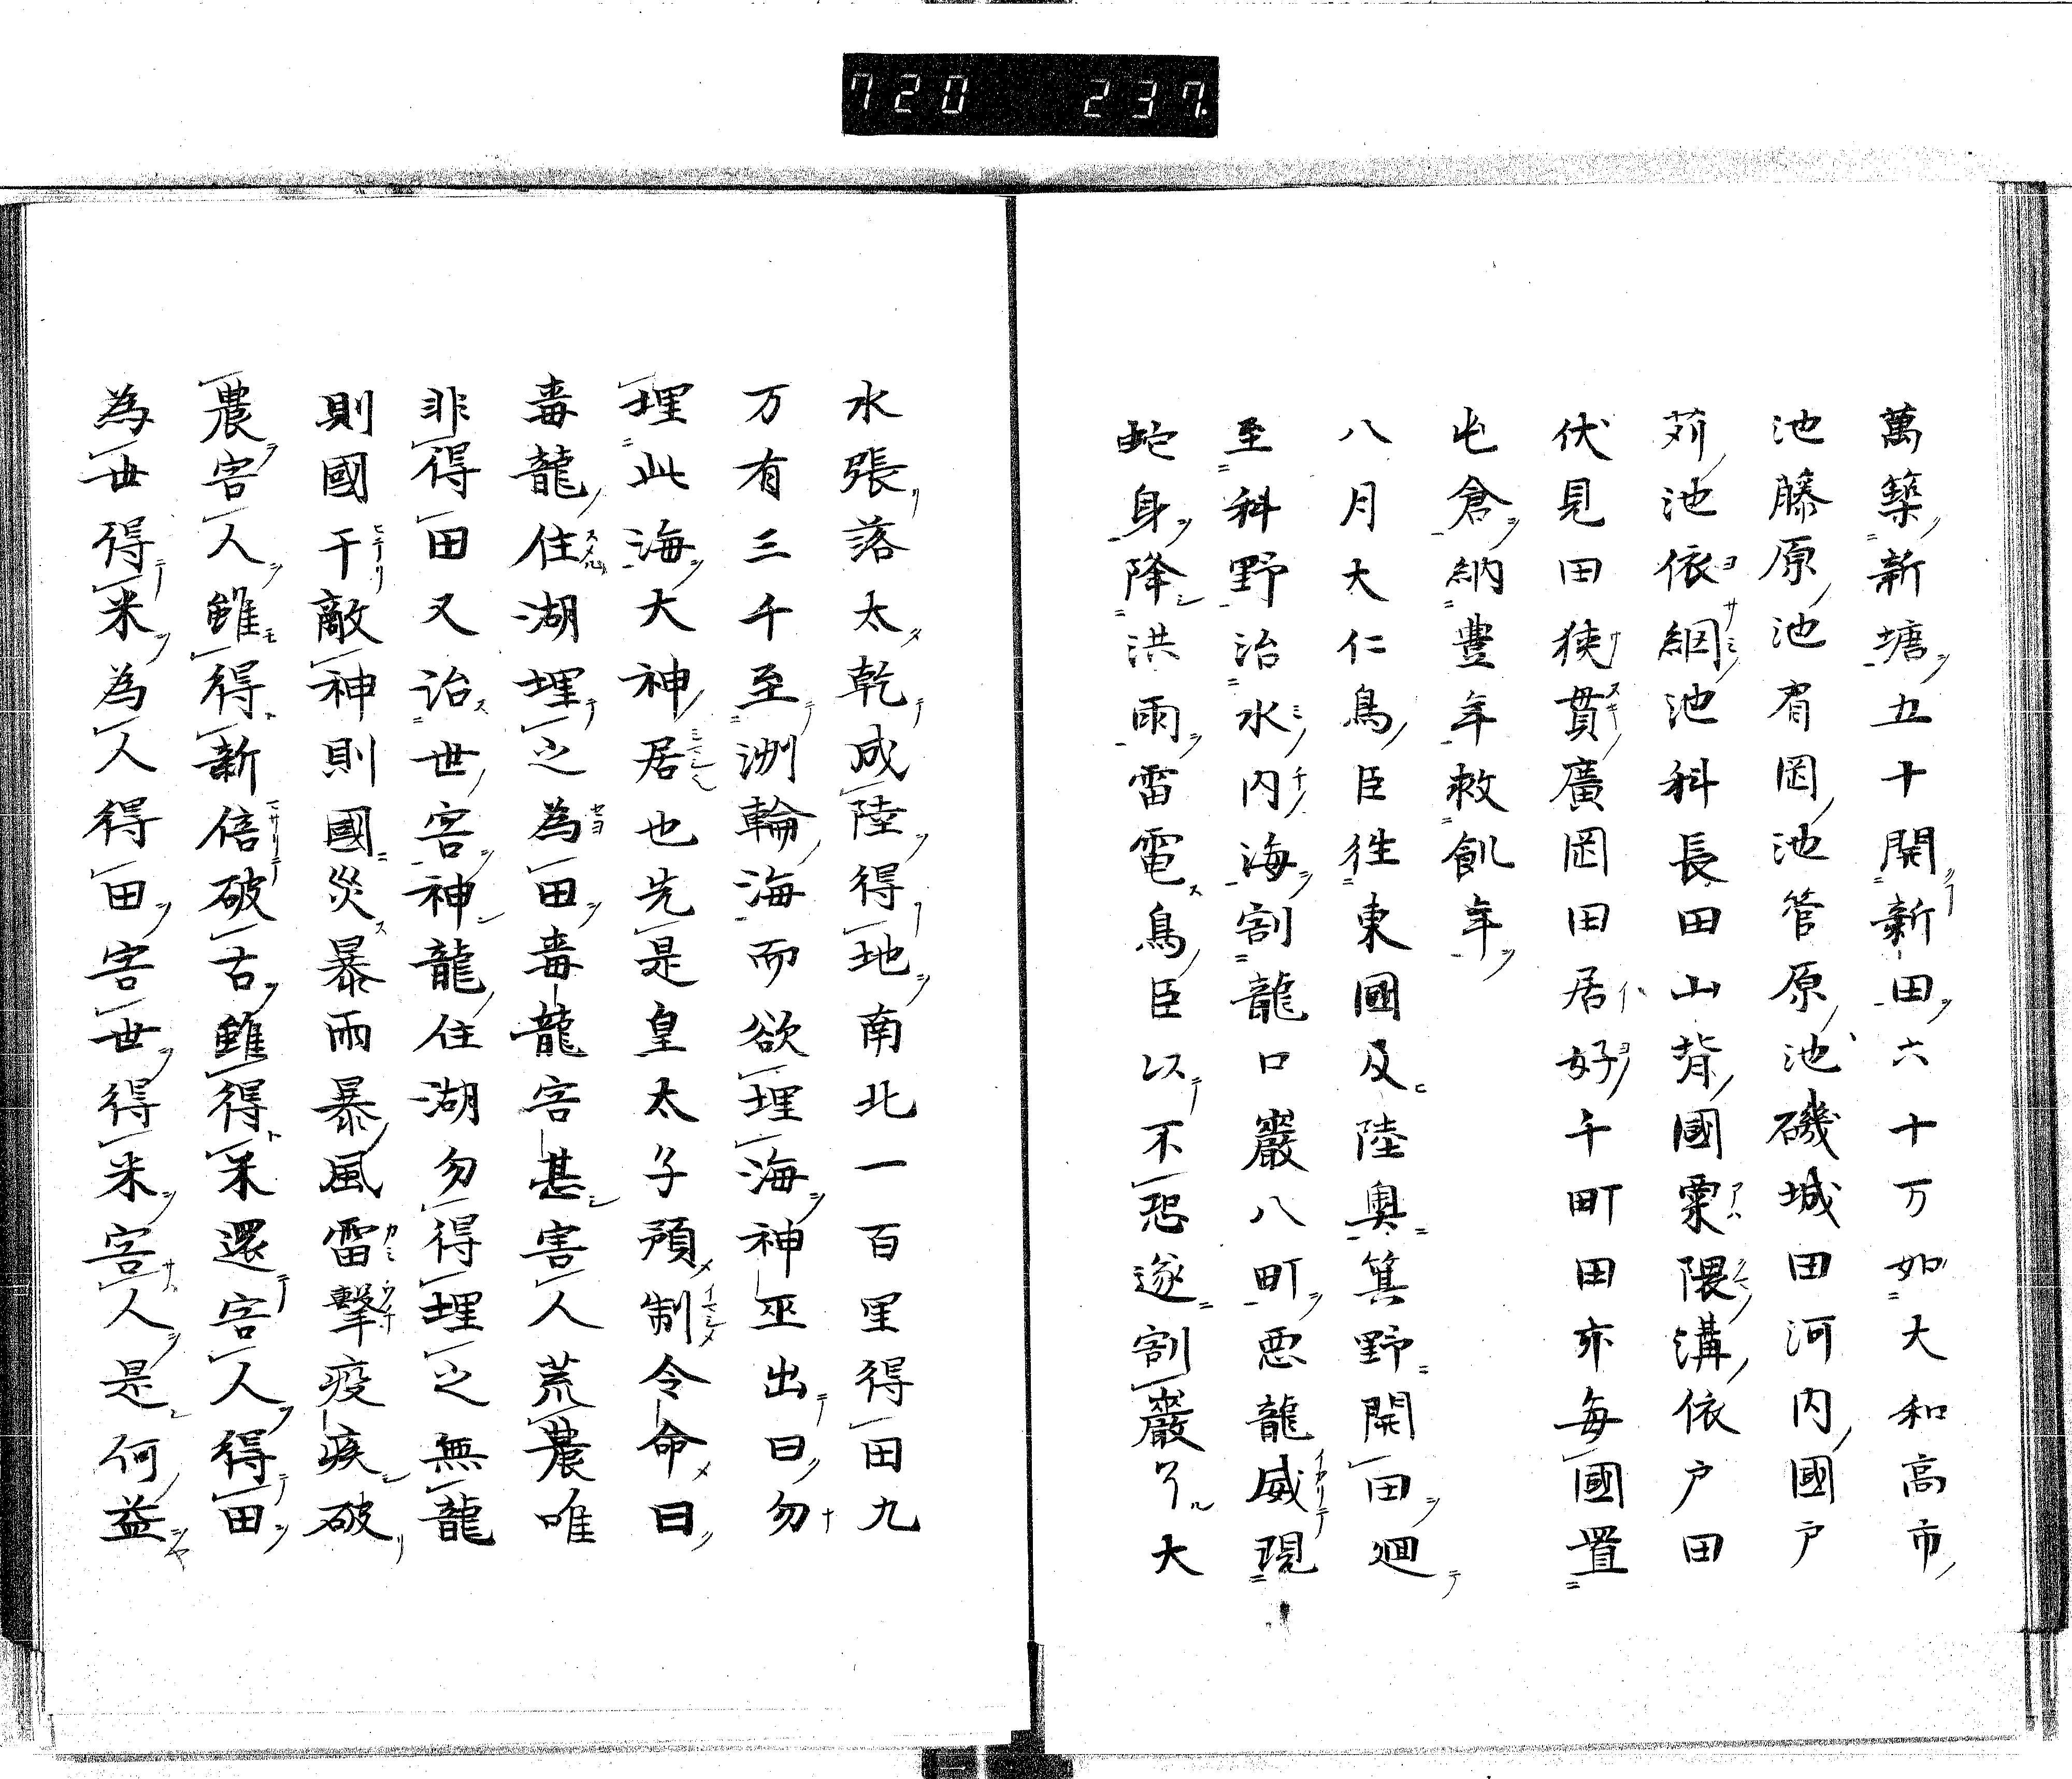 720 237
萬築新塘五十開新田六十万如大和高市
池藤原池肩岡池管原池磯城田河内國戸
苅池依網池科長田山背國栗隈溝依戸田
伏見田狭貫廣岡田居好千町田亦毎國置
屯倉納豊年救飢年
八月大仁鳥臣徃東國及陸奥箕野開田廻
至科野治水内海割龍口巖八町悪龍威現
蛇身降洪雨雷電鳥臣以不恐遂割巖了大
水張落太乾成陸得地南北一百里得田九
万有三千至洲輪海而欲埋海神巫出曰勿
埋此海大神居也先是皇太子預制令命曰
毒龍住湖埋之為田毒龍害甚害人荒農唯
非得田又詒世害神龍住湖勿得埋之無龍
則國干敵神則國災暴雨暴風雷撃疫疾破
農害人雖得新倍破古雖得米還害人得田
為世得米為人得田害世得米害人是何益